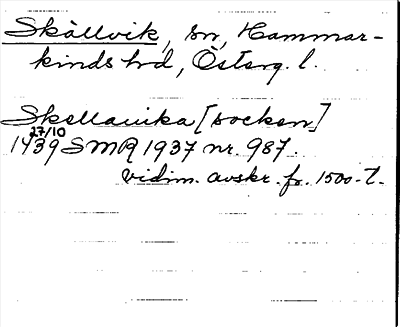 Skällvik, sn, Hammar-
kinds hd, Östерg. l.
Skællauika [socken]
27/10
1439 SMR 1937 nr. 987.
vidim. avskr. fr. 1500-t.